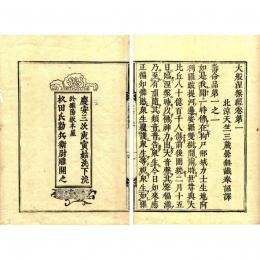 大般涅槃經卷第一
北涼天竺三藏曇無讖奉詔譯
壽命品第一之一
如是我聞一時佛在拘尸那城力士生地阿
利羅跋提河邊娑羅雙樹間爾時世尊與大
比丘八十億百千人俱前後圍遶二月十五
日臨涅槃時以佛神力出大音聲其聲徧滿
乃至有頂隨其類音普告衆生今日如來應
正徧知憐愍衆生覆護衆生等視衆生
慶安三次庚寅姑洗下浣
於雒陽板木屋
杦田氏勘兵衛尉雕開之